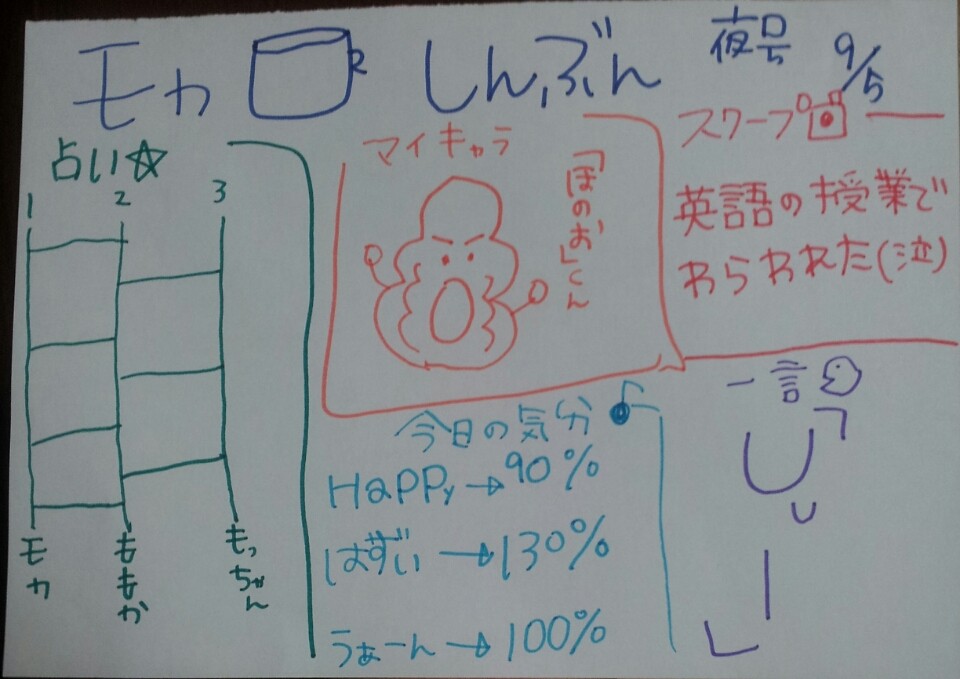 モカ しんぶん 夜号 9/5
占い☆
1 2 3
モカ
ももか
もっちゃん
マイキャラ
「ほのお」くん
スクープ
英語の授業で
わらわれた(泣)
今日の気分♪
HaPPy→90%
はずい→130%
うぁーん→100%
一言